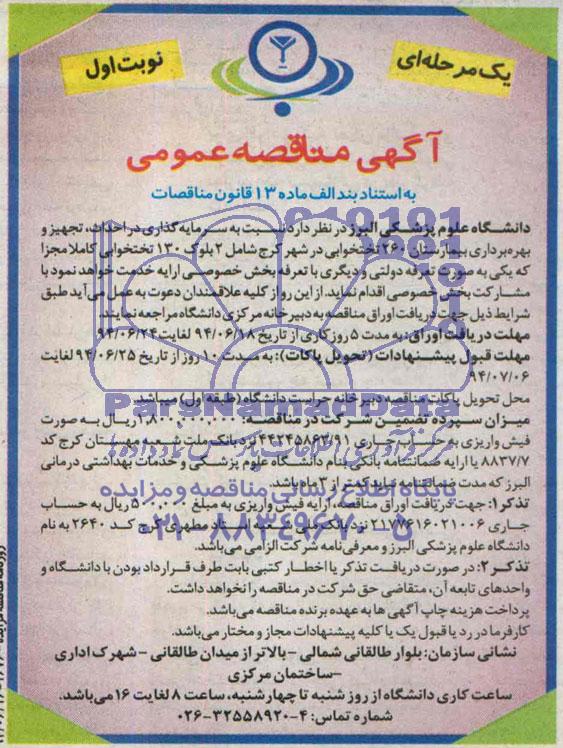 یک مرحله‌ای
نوبت اول
آگهی مناقصه عمومی
به استناد بند الف ماده ۱۳ قانون مناقصات
دانشگاه علوم پزشکی البرز در نظر دارد نسبت به سرمایه گذاری در احداث، تجهیز و
بهره برداری بیمارستان ۲۶۰ تختخوابی در شهر کرج شامل ۲ بلوک ۱۳۰ تختخوابی کاملا مجزا
که یکی به صورت تعرفه دولتی و دیگری با تعرفه بخش خصوصی ارایه خدمت خواهد نمود با
مشارکت بخش خصوصی اقدام نماید. از این رو از کلیه علاقمندان دعوت به عمل می‌آید طبق
شرایط ذیل جهت دریافت اوراق مناقصه به دبیرخانه مرکزی دانشگاه مراجعه نمایند.
مهلت دریافت اوراق: به مدت ۵ روز کاری از تاریخ ۹۴/۰۶/۱۸ لغایت ۹۴/۰۶/۲۴
مهلت قبول پیشنهادات (تحویل پاکات): به مدت ۱۰ روز از تاریخ ۹۴/۰۶/۲۵ لغایت
۹۴/۰۷/۰۶
محل تحویل پاکات مناقصه دبیرخانه حراست دانشگاه (طبقه اول) میباشد.
میزان سپرده تضمین شرکت در مناقصه: ۱,۸۰۰,۰۰۰,۰۰۰ ریال به صورت
فیش واریزی به حساب جاری ۴۴۲۴۵۸۶۲/۹۱ نزد بانک ملت شعبه مهستان کرج کد
۸۸۳۷/۷ یا ارایه ضمانتنامه بانکی بنام دانشگاه علوم پزشکی و خدمات بهداشتی درمانی
البرز که مدت ضمانتنامه نباید کمتر از ۳ ماه باشد.
تذکر۱: جهت دریافت اوراق مناقصه، ارایه فیش واریزی به مبلغ ۵۰۰,۰۰۰ ریال به حساب
جاری ۲۱۷۷۶۱۶۰۲۱۰۰۶ نزد بانک ملی شعبه استاد مطهری کرج کد ۲۶۴۰ به نام
دانشگاه علوم پزشکی البرز و معرفی نامه شرکت الزامی می‌باشد.
تذکر۲: در صورت دریافت تذکر یا اخطار کتبی بابت طرف قرارداد بودن با دانشگاه و
واحدهای تابعه آن، متقاضی حق شرکت در مناقصه را نخواهد داشت.
پرداخت هزینه چاپ آگهی ها به عهده برنده مناقصه می‌باشد.
کارفرما در رد یا قبول یک یا کلیه پیشنهادات مجاز و مختار می‌باشد.
نشانی سازمان: بلوار طالقانی شمالی – بالاتر از میدان طالقانی – شهرک اداری
–ساختمان مرکزی
ساعت کاری دانشگاه از روز شنبه تا چهارشنبه، ساعت ۸ لغایت ۱۶ می‌باشد.
شماره تماس: ۴-۳۲۵۵۸۹۲۰-۰۲۶
ParsNamadData
پایگاه اطلاع رسانی مناقصه و مزایده
۰۲۱-۸۸۳۴۹۶۷۰-۵